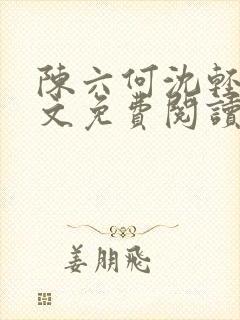 陳六何沈輕
文免費閱讀
姜朋飛